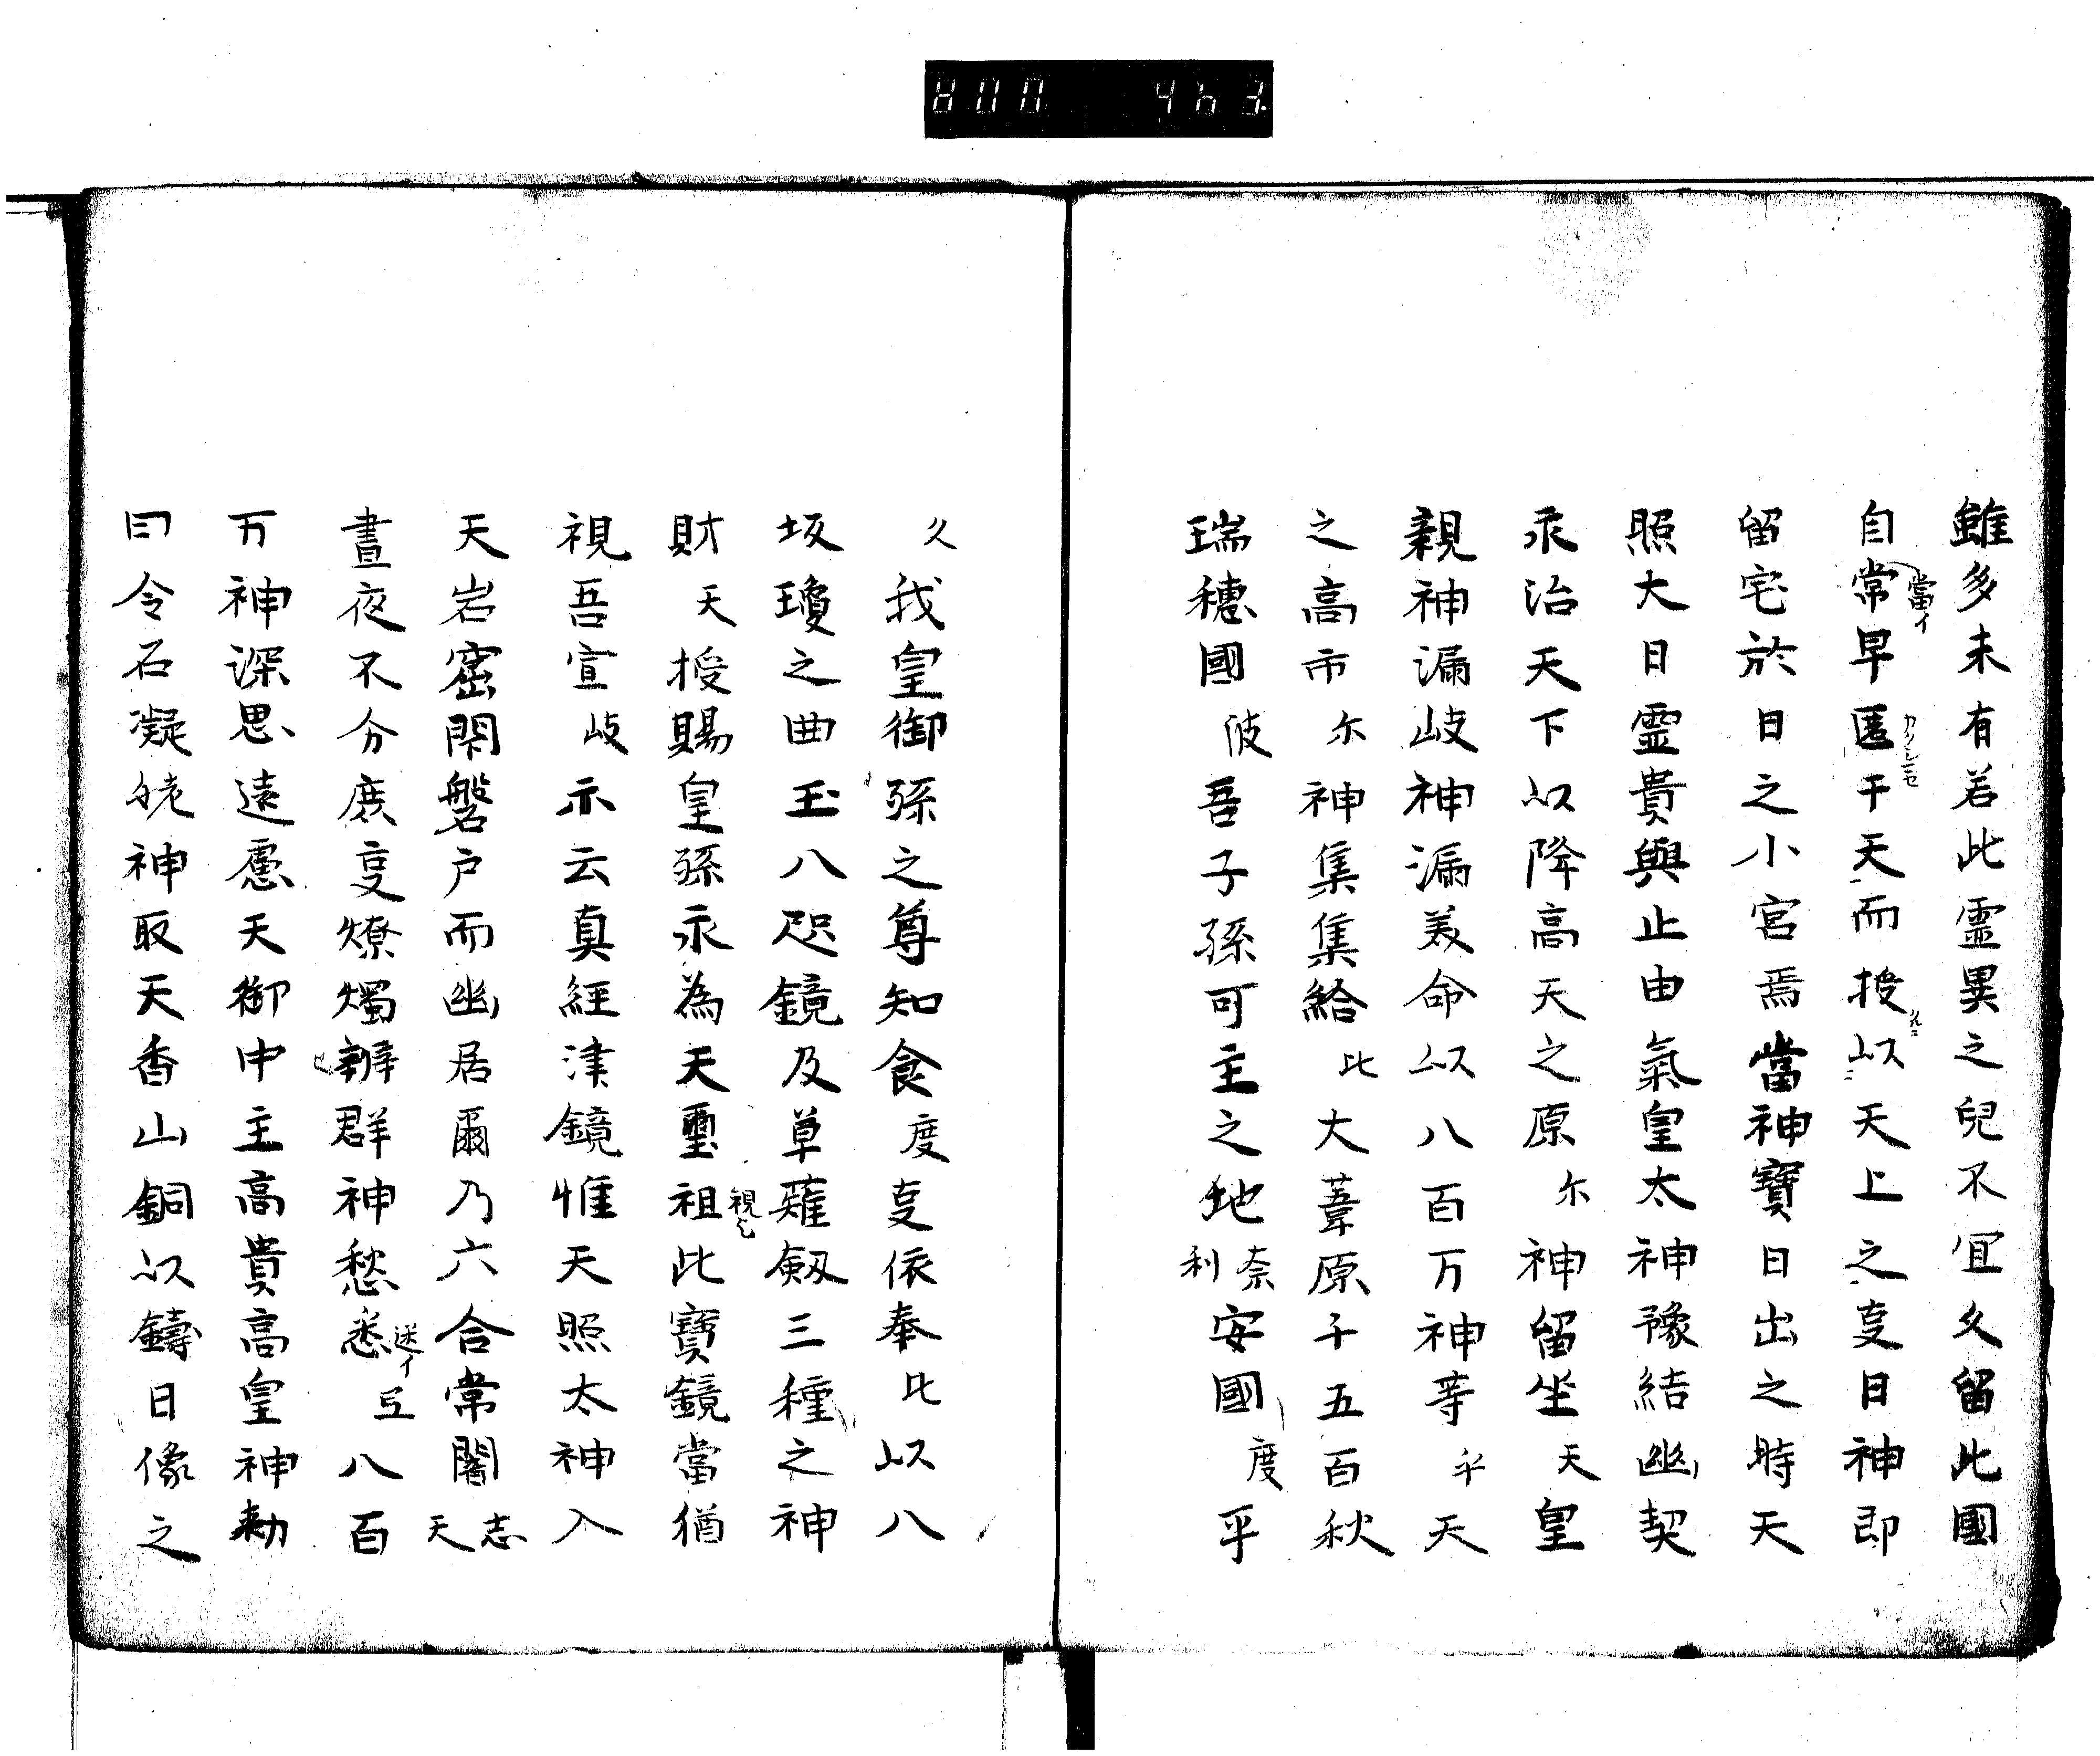 800 463
雖多未有若此霊異之皃不宜久留此國
自常早匿于天而授以天上之叓日神即
當イ
カクシニセ
留宅於日之小宮焉當神寶日出之時天
照大日霊貴與止由氣皇太神豫結幽契
永治天下以降高天之原尓神留坐天皇
親神漏岐神漏美命以八百万神等乎天
之高市尓神集集給比大葦原千五百秋
瑞穗國波吾子孫可主之地奈利安國度平
久我皇御孫之尊知食度叓依奉比以八
坂瓊之曲玉八咫鏡及草薙劔三種之神
財天授賜皇孫永為天璽祖此寶鏡當猶
視
視吾宣岐示云真經津鏡惟天照太神入
天岩窟閇磐戸而幽居爾乃六合常闇志天
晝夜不分庶叓燎燭辨群神愁悉互八百
迷イ
万神深思遠慮天御中主高貴高皇神勅
曰令石凝姥神取天香山銅以鑄日像之